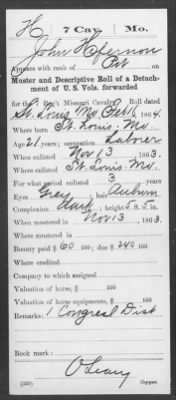 H | 7 Cav. | Mo.
John Hefernon
Appears with rank of Pvt. on
Muster and Descriptive Roll of a Detach-
ment of U. S. Vols. forwarded
for the 7 Reg't Missouri Cavalry. Roll dated
St. Louis Mo. Feb 16, 1864.
Where born St. Louis, Mo.
Age 21 years; occupation Laborer
When enlisted Nov 13, 1863.
Where enlisted St. Louis Mo.
For what period enlisted 3 years
Eyes Grey; hair Auburn
Complexion Dark; height 5 ft. 5 in.
When mustered in Nov 13, 1863.
Where mustered in
Bounty paid $ 60 100; due $ 240 100
Where credited
Company to which assigned
Valuation of horse, $ 100
Valuation of horse equipments, $ 100
Remarks: 1 Congreal Dist
Book mark:
O'Leary
(339) Copyist.